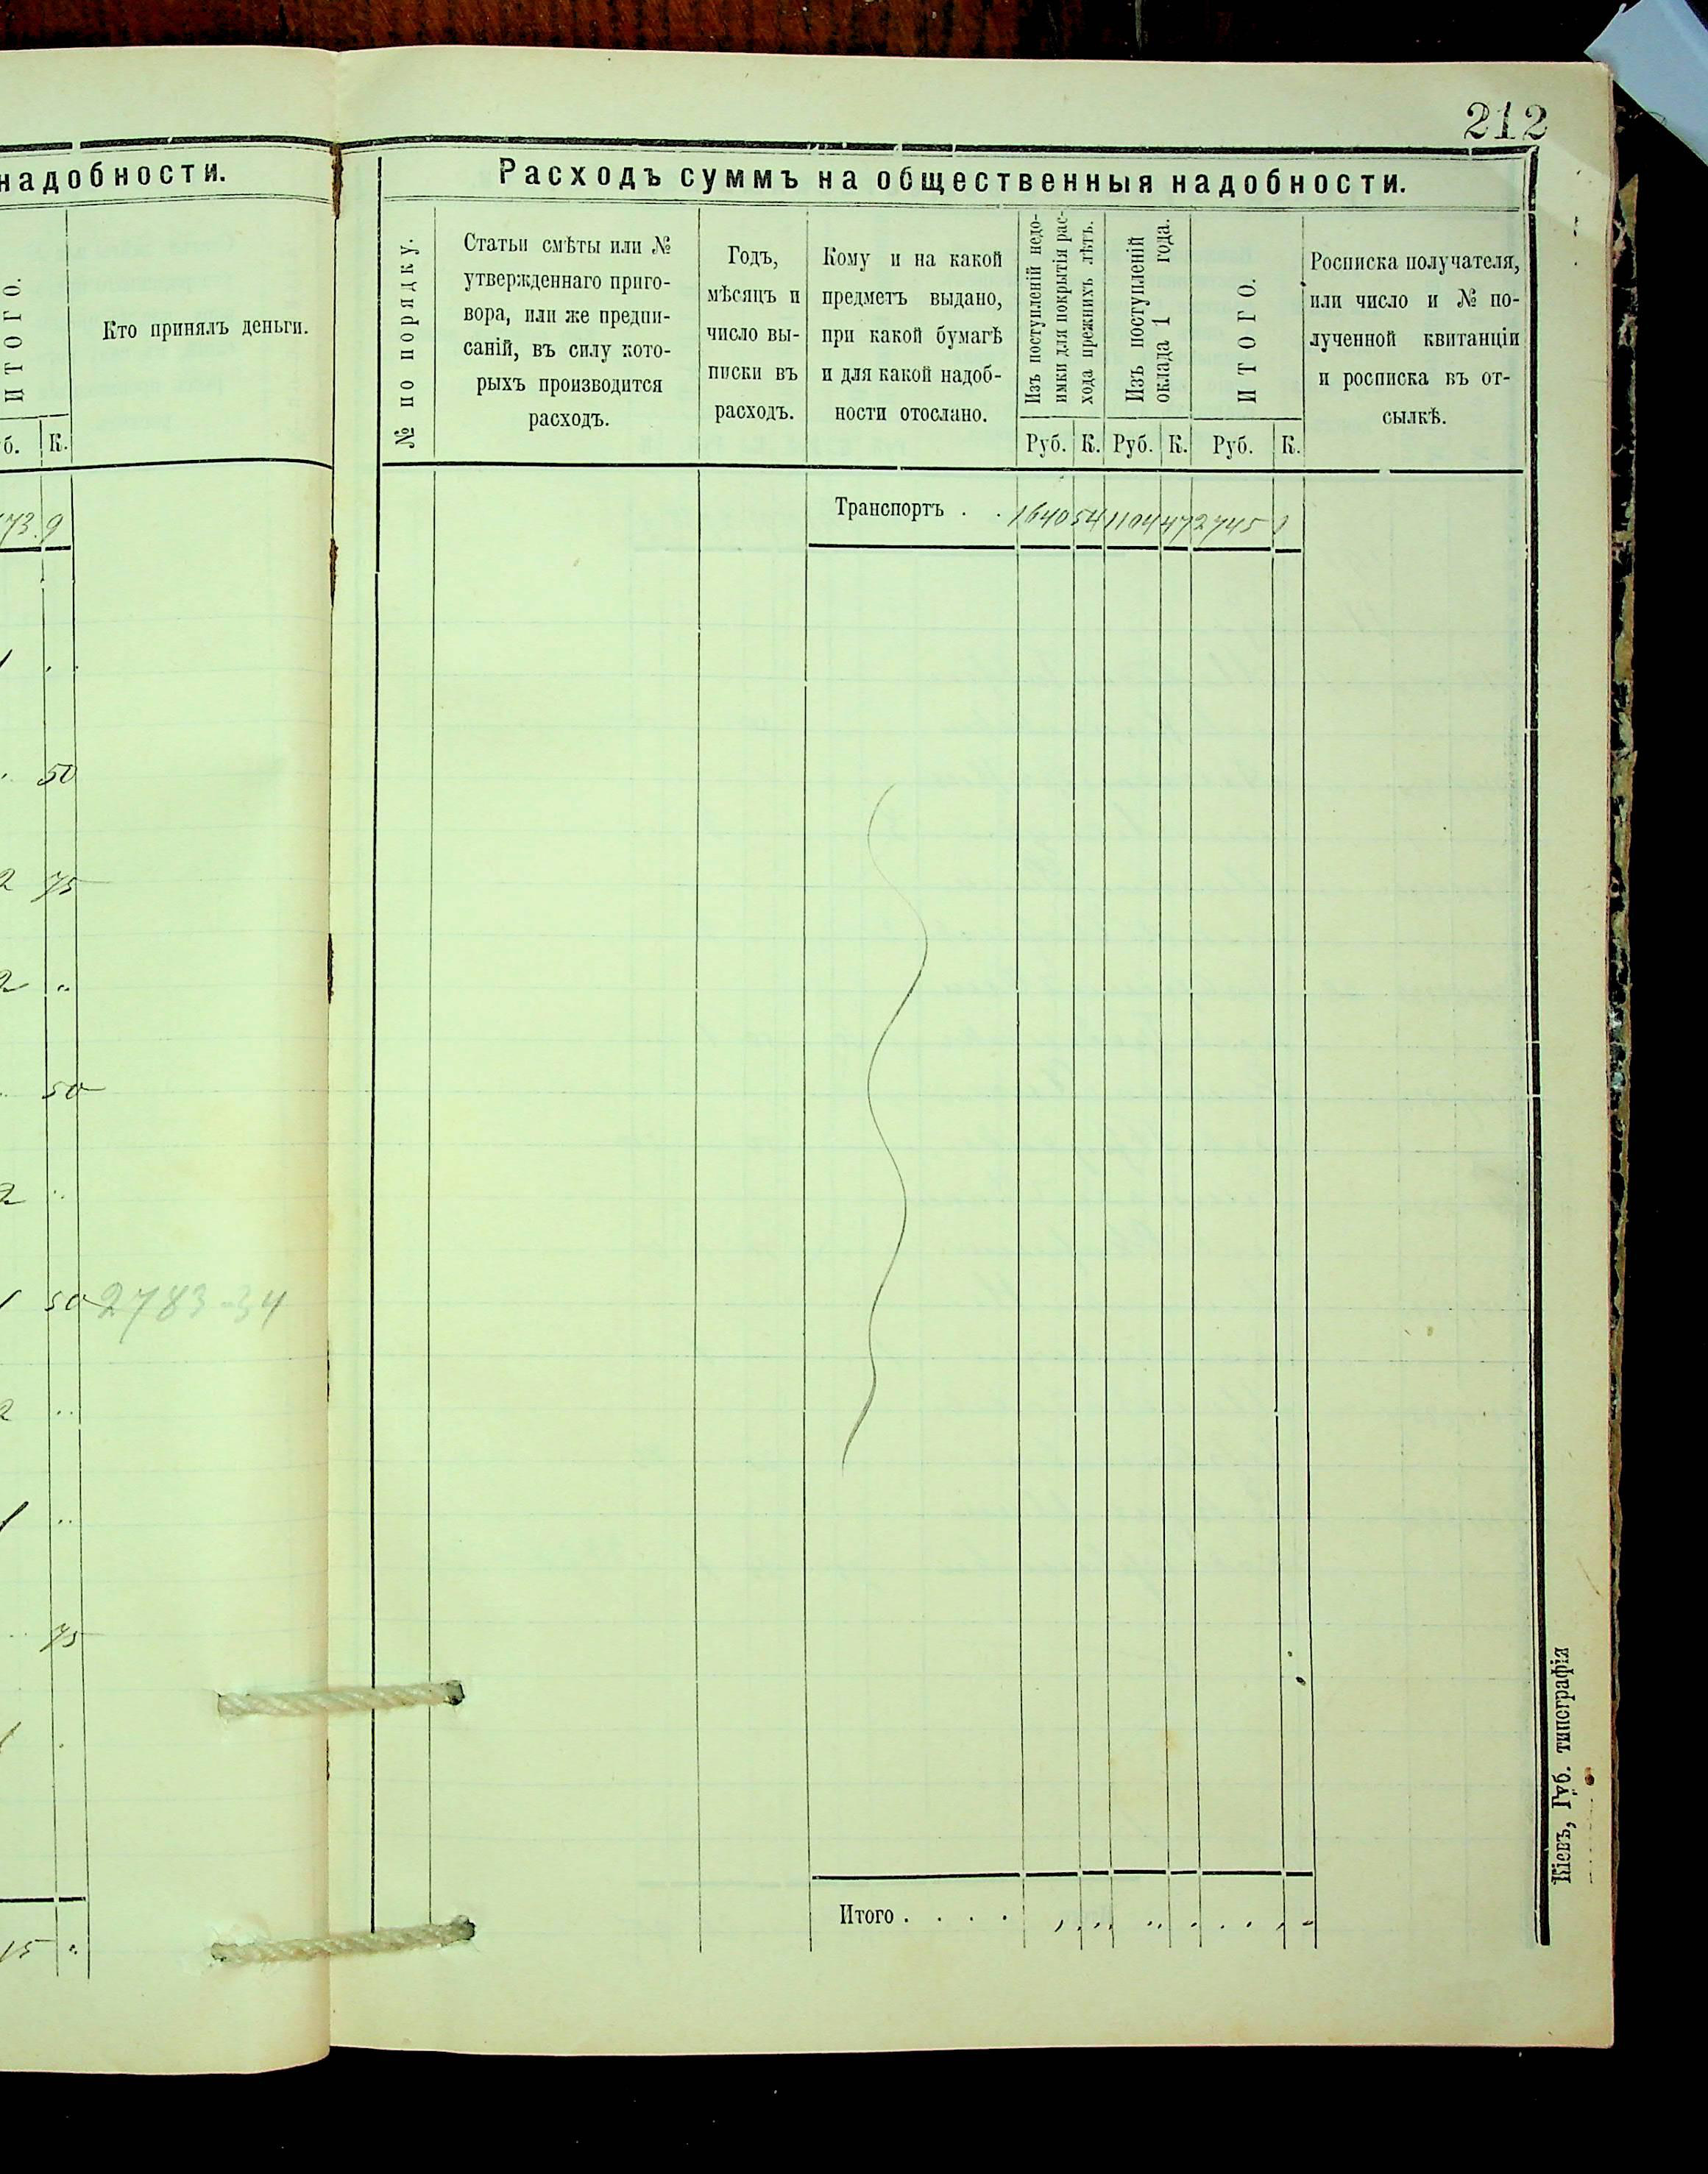 212
надобности.
ИТОГО.
Кто принялъ деньги.
б. К.
73. 9
50
2 75
2 "
50
2 "
1 50 2783-34
2 "
1 "
75
15 "
Расходъ суммъ на общественныя надобности.
№ по порядку.
Статьи смѣты или №
утвержденнаго приго-
вора, или же предпи-
саній, въ силу кото-
рыхъ производится
расходъ.
Годъ,
мѣсяцъ и
число вы-
писки въ
расходъ.
Кому и на какой
предметъ выдано,
при какой бумагѣ
и для какой надоб-
ности отослано.
Изъ поступленій недо-
имки для покрытія рас-
хода прежнихъ лѣтъ.
Изъ поступленій
оклада 1 года.
ИТОГО.
Росписка получателя,
или число и № по-
лученной квитанціи
и росписка въ от-
сылкѣ.
Руб. К. Руб. К. Руб. К.
Транспортъ . . 1640 54 1104 47 2745 1
Итого . . . .
Кіевъ, Губ. типографія